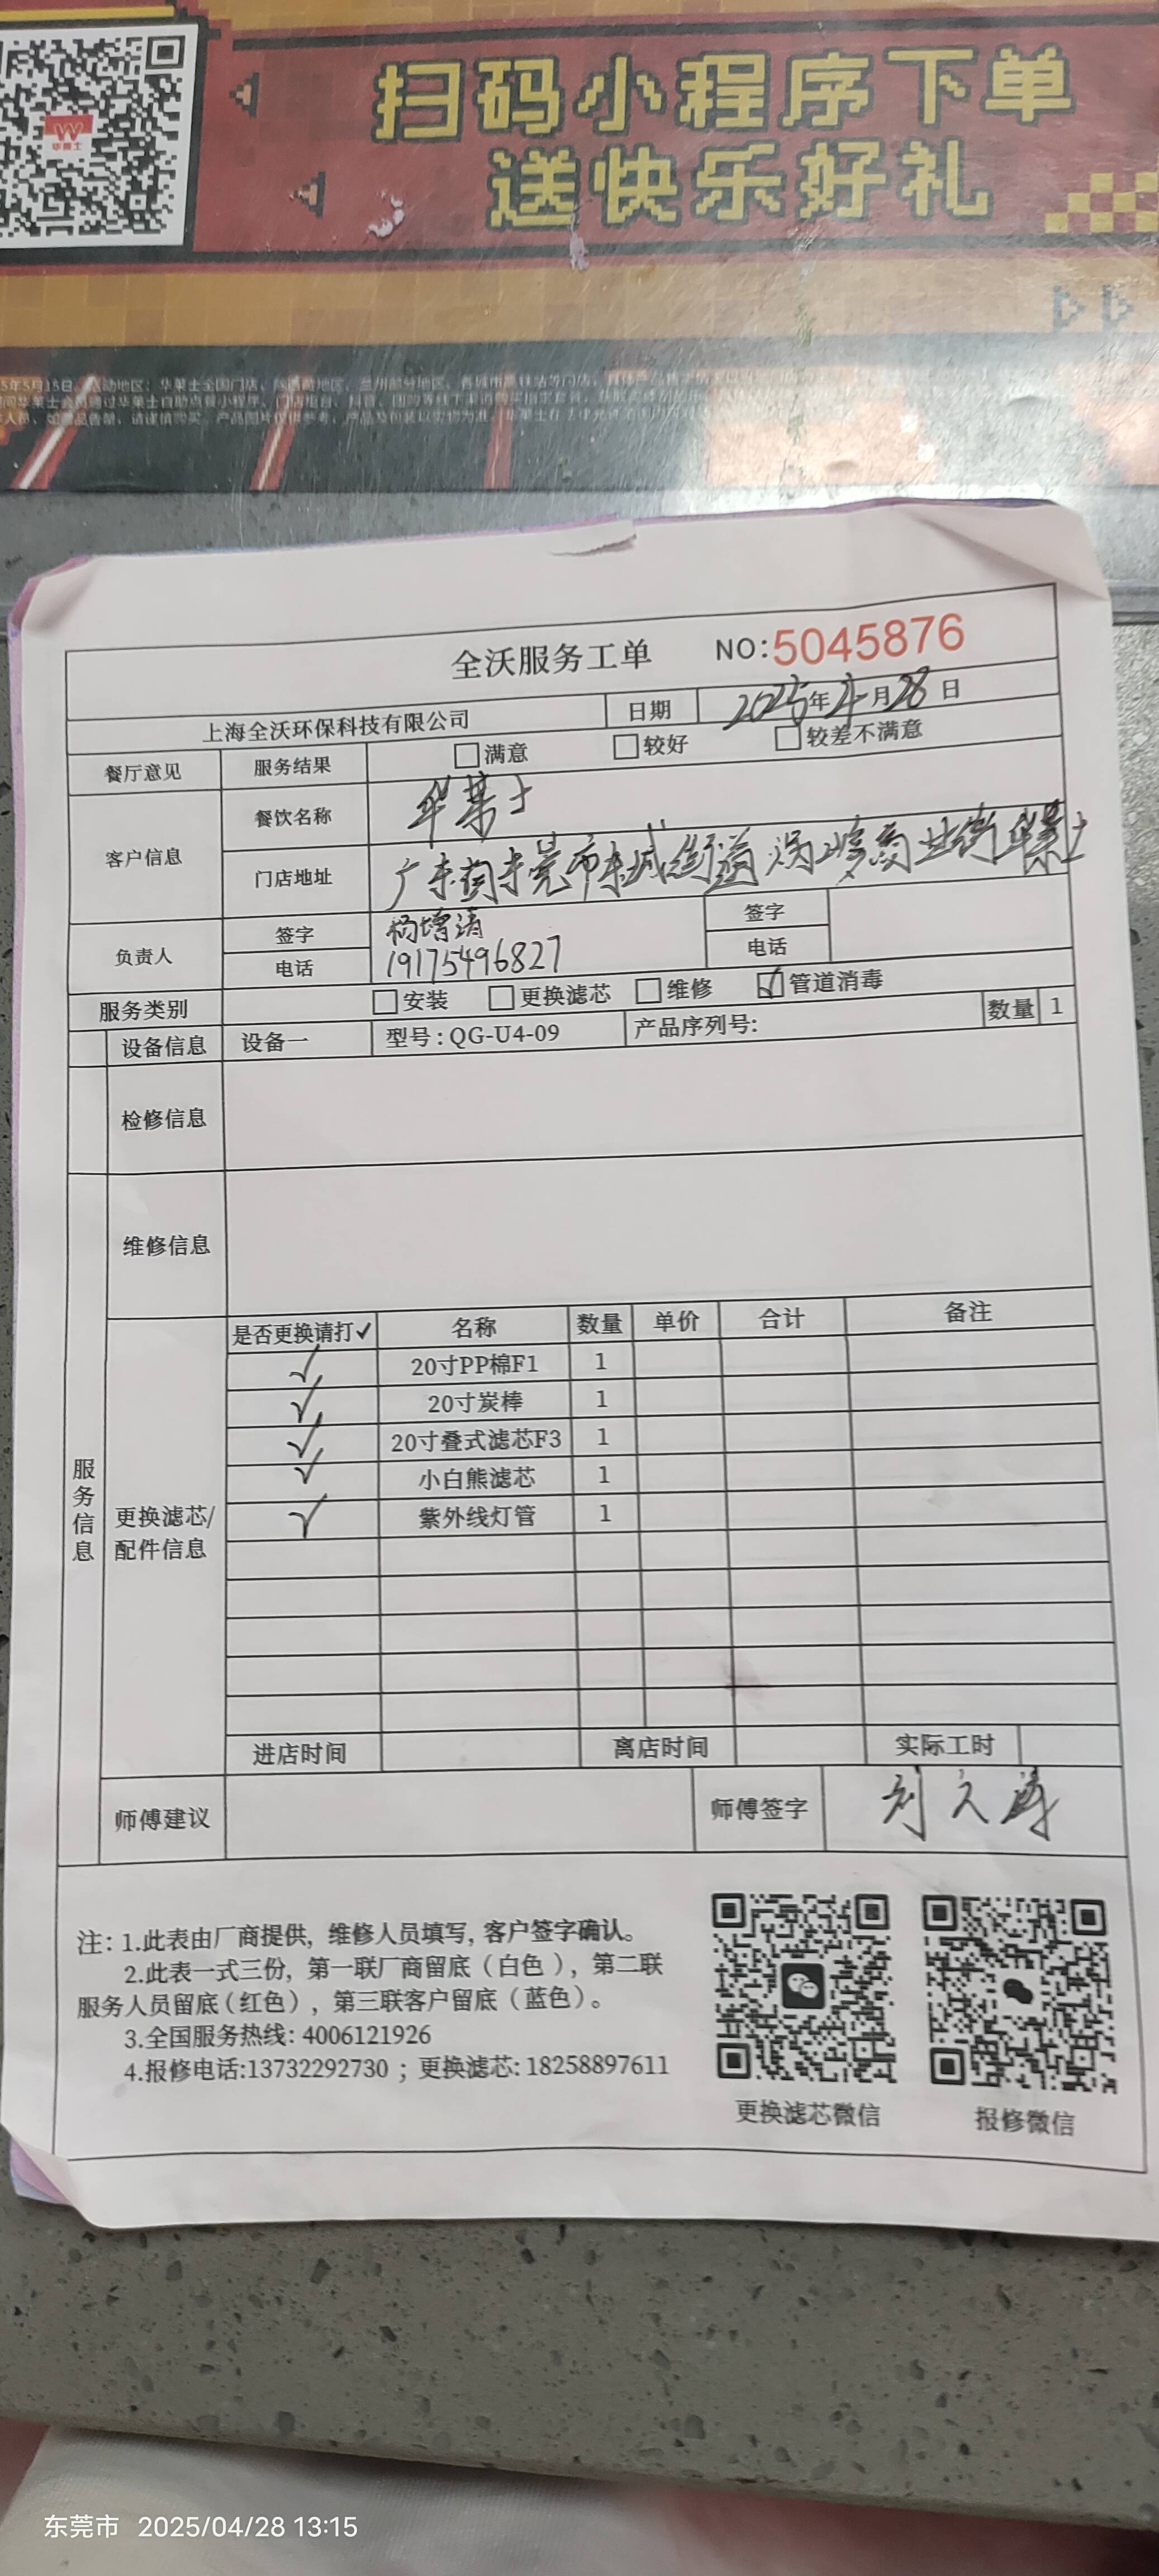 扫码小程序下单
送快乐好礼
华莱士
全沃服务工单 NO:5045876
上海全沃环保科技有限公司 日期 2025年4月28日
餐厅意见 服务结果 满意 较好 较差不满意
客户信息 餐饮名称 华莱士
门店地址 广东省东莞市东城街道 商业街华莱士
负责人 签字 杨增清 签字
电话 19175496827 电话
服务类别 安装 更换滤芯 维修 ✓管道消毒
设备信息 设备一 型号: QG-U4-09 产品序列号: 数量 1
检修信息
维修信息
服务信息
更换滤芯/配件信息
是否更换请打✓ 名称 数量 单价 合计 备注
✓ 20寸PP棉F1 1
✓ 20寸炭棒 1
✓ 20寸叠式滤芯F3 1
✓ 小白熊滤芯 1
✓ 紫外线灯管 1
进店时间 离店时间 实际工时
师傅建议 师傅签字 刘久海
注: 1.此表由厂商提供, 维修人员填写, 客户签字确认。
2.此表一式三份, 第一联厂商留底（白色）, 第二联
服务人员留底（红色）, 第三联客户留底（蓝色）。
3.全国服务热线: 4006121926
4.报修电话:13732292730 ; 更换滤芯: 18258897611
更换滤芯微信 报修微信
东莞市 2025/04/28 13:15